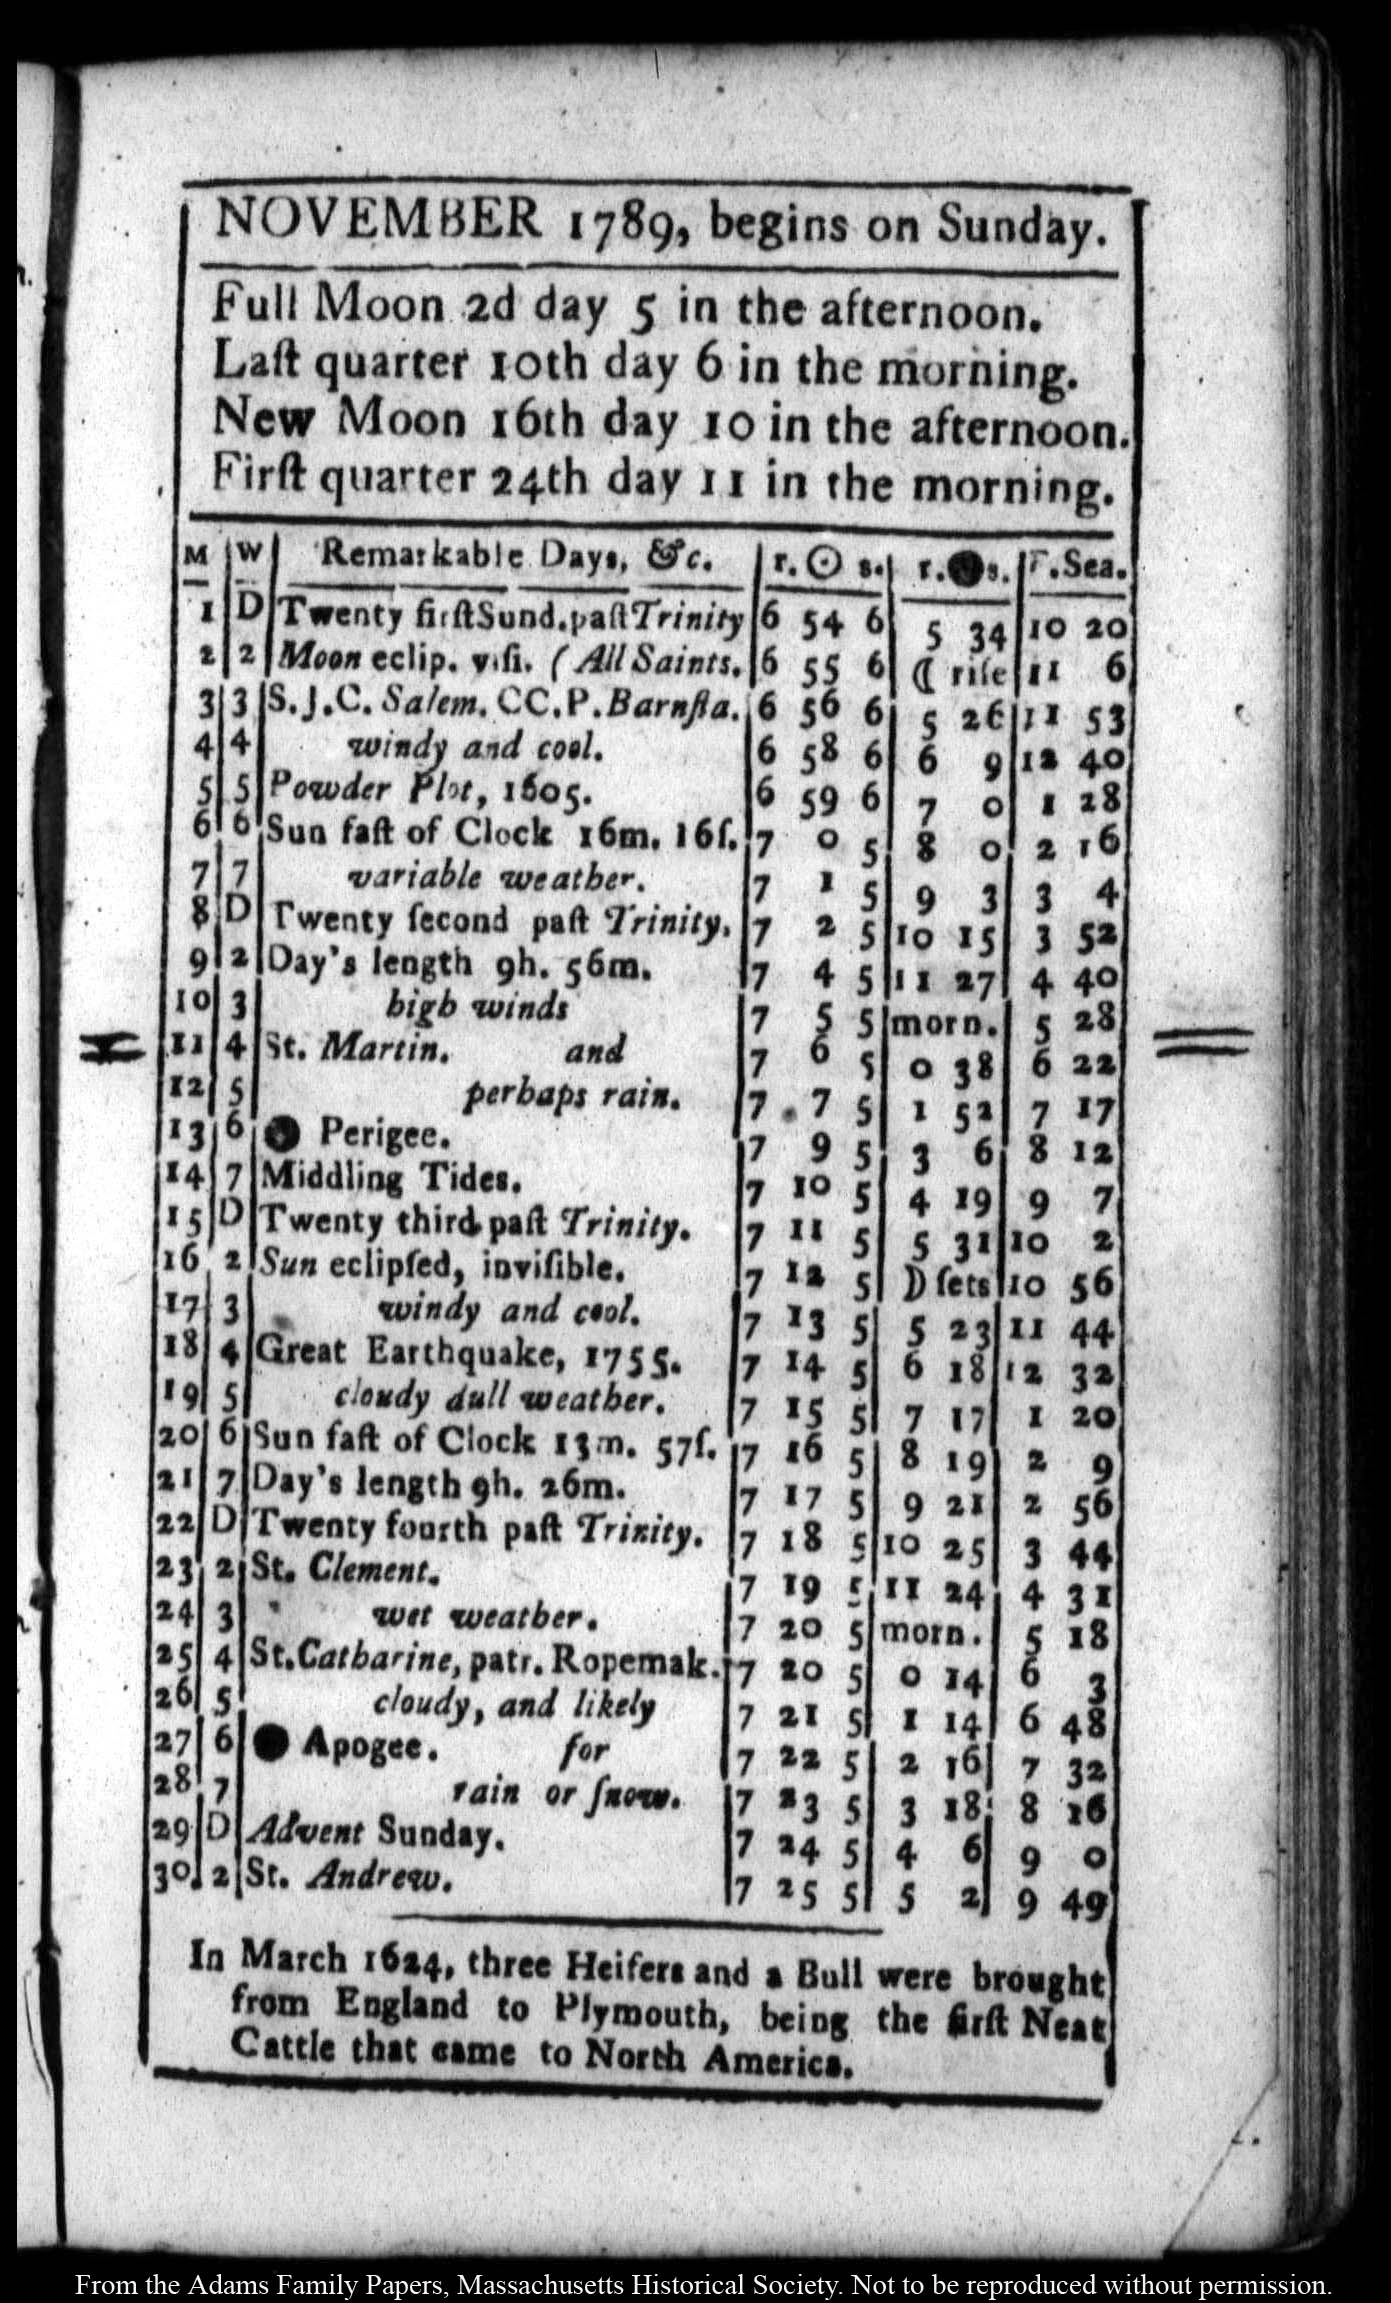 NOVEMBER 1789, begins on Sunday.
Full Moon 2d day 5 in the afternoon.
Laſt quarter 10th day 6 in the morning.
New Moon 16th day 10 in the afternoon.
Firſt quarter 24th day 11 in the morning.
M W Remarkable Days, &c. r. ☉ s. r. ● s. F. Sea.
1 D Twenty firſt Sund. paſt Trinity 6 54 6 5 34 10 20
2 2 Moon eclip. viſi. (All Saints. 6 55 6 ☾ riſe 11 6
3 3 S.J.C. Salem. CC.P. Barnſta. 6 56 6 5 26 11 53
4 4 windy and cool. 6 58 6 6 9 12 40
5 5 Powder Plot, 1605. 6 59 6 7 0 1 28
6 6 Sun faſt of Clock 16m. 16ſ. 7 0 5 8 0 2 16
7 7 variable weather. 7 1 5 9 3 3 4
8 D Twenty ſecond paſt Trinity. 7 2 5 10 15 3 52
9 2 Day's length 9h. 56m. 7 4 5 11 27 4 40
10 3 high winds 7 5 5 morn. 5 28
11 4 St. Martin. and 7 6 5 0 38 6 22
12 5 perhaps rain. 7 7 5 1 52 7 17
13 6 ● Perigee. 7 9 5 3 6 8 12
14 7 Middling Tides. 7 10 5 4 19 9 7
15 D Twenty third paſt Trinity. 7 11 5 5 31 10 2
16 2 Sun eclipſed, inviſible. 7 12 5 ☽ ſets 10 56
17 3 windy and cool. 7 13 5 5 23 11 44
18 4 Great Earthquake, 1755. 7 14 5 6 18 12 32
19 5 cloudy dull weather. 7 15 5 7 17 1 20
20 6 Sun faſt of Clock 13m. 57ſ. 7 16 5 8 19 2 9
21 7 Day's length 9h. 26m. 7 17 5 9 21 2 56
22 D Twenty fourth paſt Trinity. 7 18 5 10 25 3 44
23 2 St. Clement. 7 19 5 11 24 4 31
24 3 wet weather. 7 20 5 morn. 5 18
25 4 St. Catharine, patr. Ropemak. 7 20 5 0 14 6 3
26 5 cloudy, and likely 7 21 5 1 14 6 48
27 6 ● Apogee. for 7 22 5 2 16 7 32
28 7 rain or ſnow. 7 23 5 3 18 8 16
29 D Advent Sunday. 7 24 5 4 6 9 0
30 2 St. Andrew. 7 25 5 5 2 9 49
In March 1624, three Heifers and a Bull were brought
from England to Plymouth, being the firſt Neat
Cattle that came to North America.
From the Adams Family Papers, Massachusetts Historical Society. Not to be reproduced without permission.